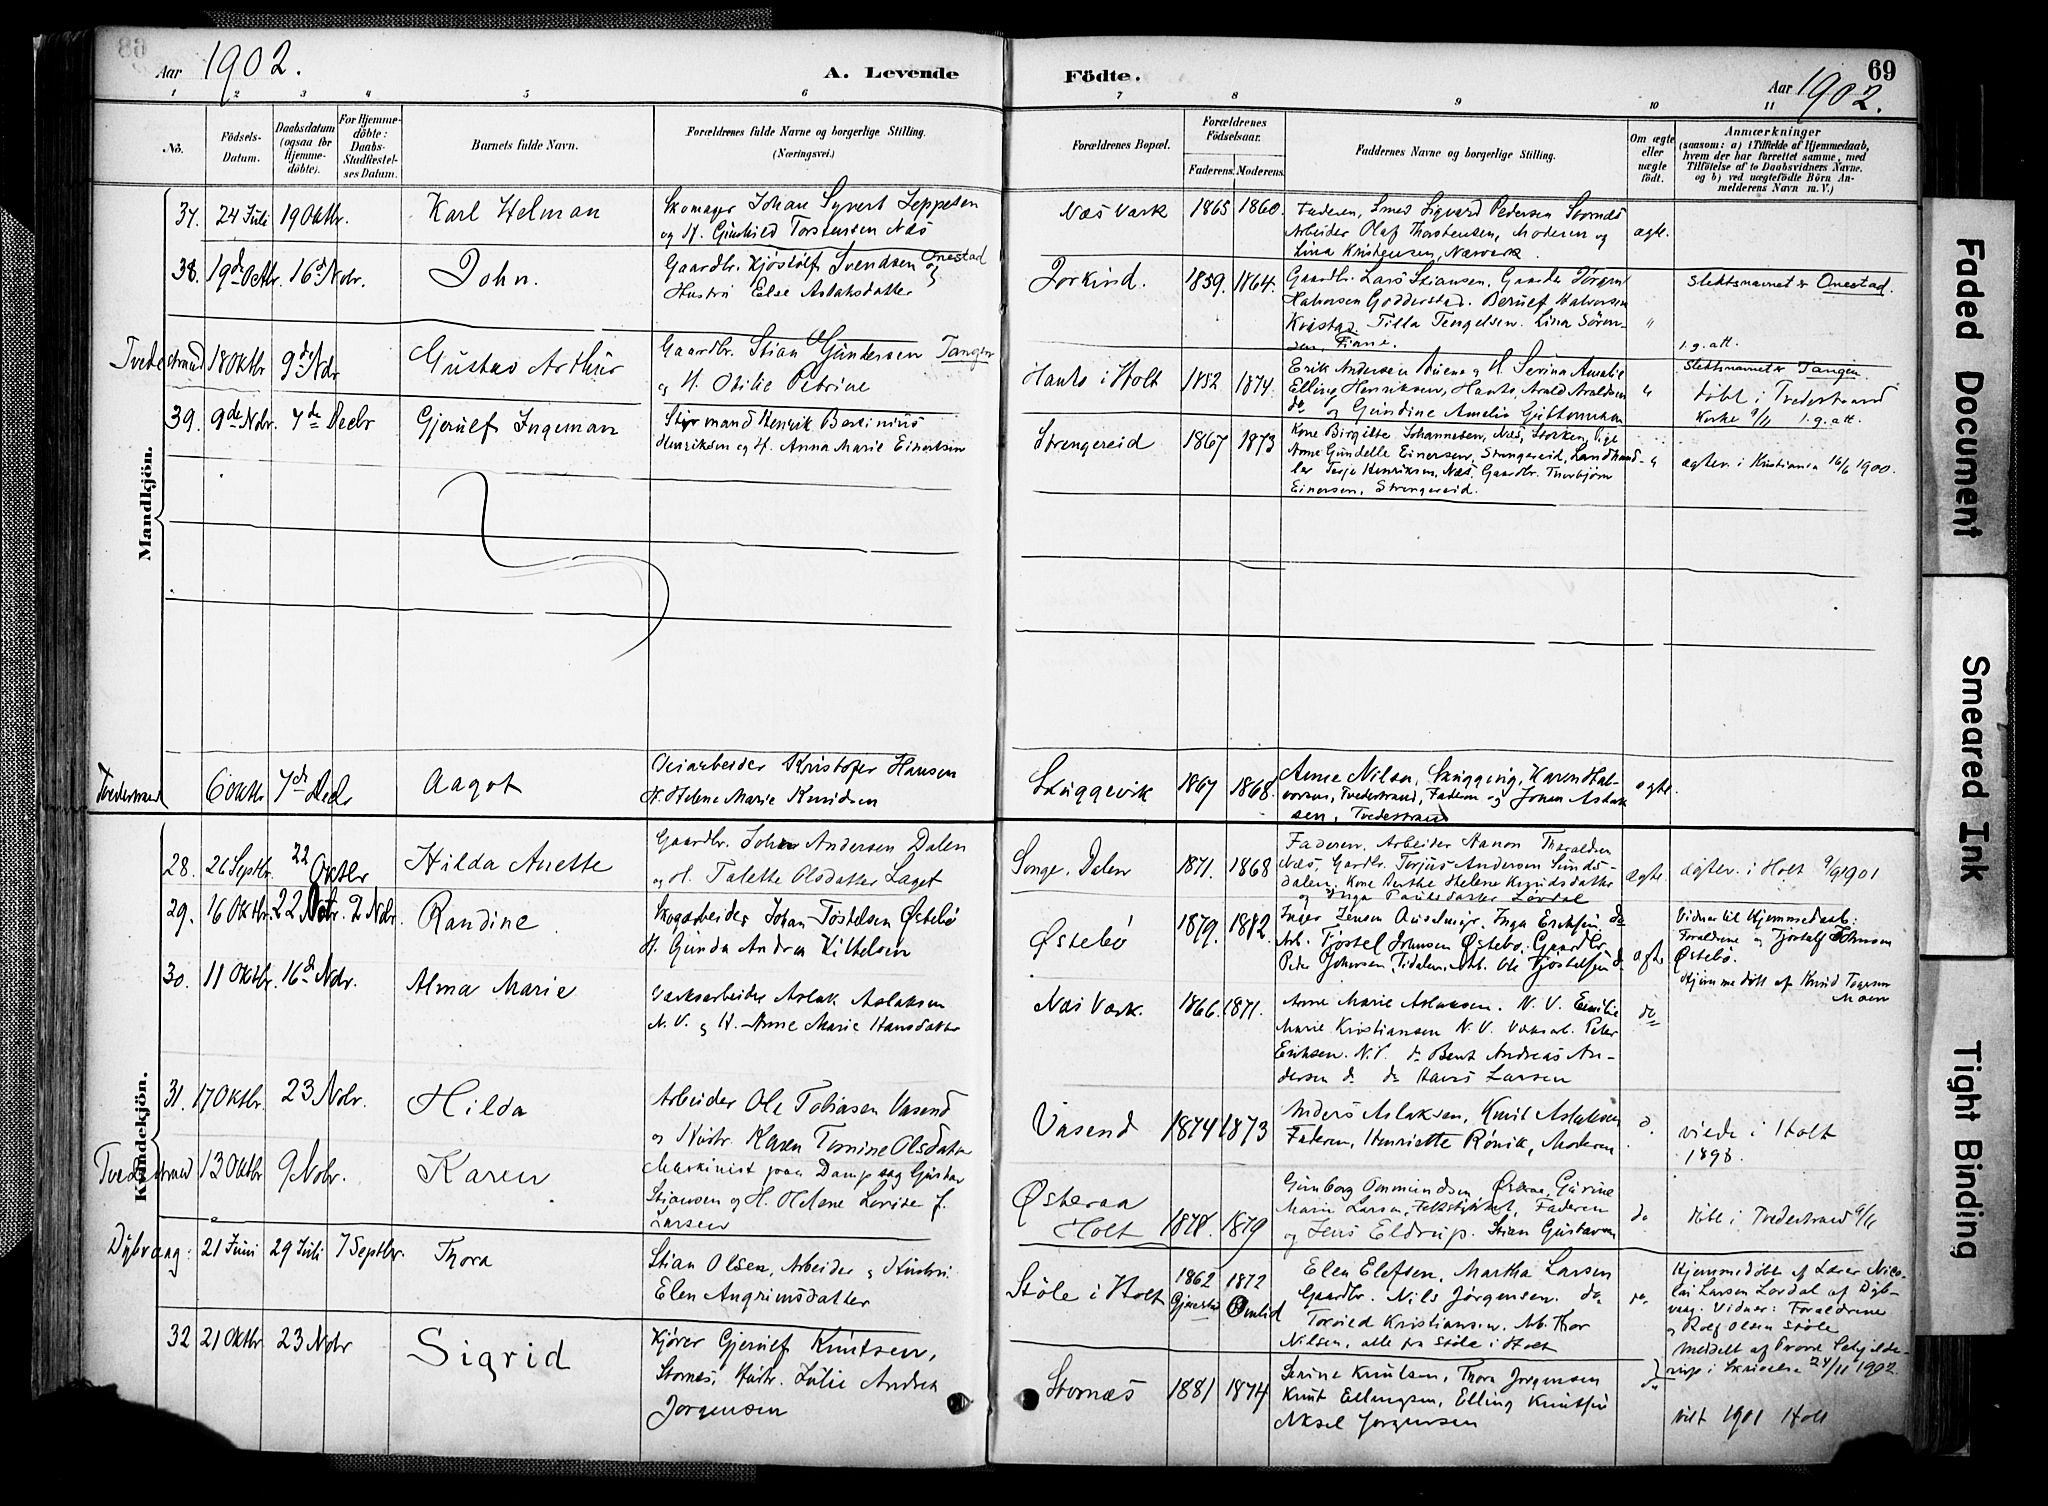 Aar 1902.
A. Levende
Födte.
69
Aar 1902.
1 2 3 4 5 6 7 8 9 10 11
No.
Födsels-
Datum.
Daabsdatum
(ogsaa for
Hjemme-
döbte).
For Hjemme-
döbte:
Daabs-
Stadfæstel-
ses Datum.
Barnets fulde Navn.
Forældrenes fulde Navne og borgerlige Stilling.
(Næringsvei.)
Forældrenes Bopæl.
Forældrenes
Födselsaar.
Faderens. Moderens.
Faddernes Navne og borgerlige Stilling.
Om ægte
eller
uægte
födt.
Anmærkninger
(saasom: a) i Tilfælde af Hjemmedaab,
hvem der har forrettet samme, med
Tilföielse af to Daabsvidners Navne.
og b) ved uægtefödte Börn An-
melderens Navn m. V.)
Mandkjön.
37. 24 Juli 19 Oktbr. Karl Helman
Skomager Johan Syvert Jeppesen
og H. Gunhild Torstensen Næs
Næs Værk 1865 1860.
Faderen, Smed Sigvard Pedersen Stornæs
Arbeider Olaf Thorstensen, Moderen og
Lina Kristensen, Næsværk
ægte.
38. 19de Octbr. 16d Novbr. John.
Gaardbr. Kjöstolf Svendsen Onestad og
Hustru Else Aslaksdatter
1859. 1864.
Gaardbr. Lars Stiansen, Gaardbr Jörgen
Halvorsen Godderstad. Berulf Halvorsen
Tilla Tengelsen. Lina Sören-
sen, Fiane.
Slektsnavnet er Onestad.
1. g. att.
Tvedestrand 18 Oktbr 9de Nbr Gustav Arthur
Gaardbr. Stian Gundersen Tangen
og H. Otilie Petrine
Hantho i Holt 1852 1874.
Erik Andersen og H Serina Amalie
Elling Henriksen, Hantho, Arald Araldsen
do og Gundine Amelia Guttormsen
Slektsnavnet er Tangen.
döbt i Tvedestrand
Kirke 9/11 1. g. att.
39. 9de Nobr. 7de Decbr Gjerulf Ingeman
Styrmand Henrik Bertinius
Henriksen og H. Anna Marie Einersen
Strengereid 1867 1873
Kone Birgitte Johannesen, Næs, Pige
Anne Gundelle Einersen, Strengereid, Landhand-
ler Terje Henriksen, Næs, Gaardbr. Thorbjörn
Einersen, Strengereid.
ægtev. i Kristiania 16/6 1900.
Tvedestrand 6 Oktbr 7de Decbr Aagot
Veiarbeider Kristofer Hansen
H. Helene Marie Knudsen
Skuggevik 1867 1868.
Anne Nilsen, Skuggevig, Karen Hal-
vorsen, Tvedestrand, Faderen og Johan Aslak
sen, Tvedestrand
ægte.
Kvindekjön.
28. 26 Septbr. 22 Oktbr Hilda Anette
Gaardbr. John Andersen Dalen
og H. Talette Olsdatter Laget
Songe, Dalen 1871. 1868
Faderen. Arbeider Nanon Tharaldsen
Næs, Gardbr. Torjus Andersen Sunds-
dalen, Kone Berthe Helene Knudsdatter
og Inga Poulsdatter Lordal
ægte. ægtev. i Holt 9/9 1901
29. 16 Oktbr. 22 Oktbr. 2 Nobr. Randine
Skogarbeider Johan Töstelsen Østebö
H. Gunda Andrea Kittelsen
Østebö 1879. 1882.
Inger Jensen Auselmyr, Inga Eriksen do
Arb. Tjöstel Johnsen Østebö. Gaardbr.
Peder Johnsen, Tidalen, Arb. Ole Tjöstelsen do
ægte.
Vidner til Hjemmedaab:
Forældrene og Tjöstolf Johnsen
Østebö.
Hjemmedöbt af Knud Tegersen
Moen
30. 11 Oktbr. 16d Nobr. Alma Marie
Værksarbeider Aslak Aslaksen
N. V. og H. Anne Marie Hansdatter
Næs Værk. 1866. 1871.
Anne Marie Aslaksen. N. V. Emilie
Marie Kristiansen N. V. Værksarb. Peter
Eriksen. N. V. do Bent Andreas An-
dersen do do Hans Larsen
do
31. 17 Oktbr. 23 Nobr. Hilda
Arbeider Ole Tobiasen Vasend
og Hustr. Karen Tomine Olsdatter
Vasend 1874 1873
Anders Aslaksen, Knut Aslaksen
Faderen, Henriette Rönik, Moderen
d. viede i Holt
1898.
Tvedestrand 13 Oktbr 9 Nobr. Karen
Maskinist paa Dampsag Gustav
Stiansen og H. Helene Lovise f.
Larsen
Østeraa
Holt 1878. 1879
Gunborg Ommundsen Østeraa, Gurine
Marie Larsen, Faderen
og Jens Eldrup. Stian Gustavsen
do döbt i Tvedestrand 9/11
Dybvaag: 21 Juni 29 Juli 7 Septbr. Thora
Stian Olsen, Arbeider og Hustru
Elen Angrimsdatter
Stöle i Holt 1862 Gjerestad 1872 Omlid
Elen Elefsen, Martha Larsen
Gaardbr. Nils Jörgensen. do
Toroild Kristiansen. Arb. Thor
Nilsen, alle fra Stöle i Holt
Hjemmedöbt af Lærer Nico-
lai Larsen Lordal af Dyb-
vaag. Vidner: Forældrene
og Rolf Olsen Stöle
Meddelt af Provst Schjelde-
rup i Skrivelse 24/11 1902.
32 21 Oktbr 23 Nobr Sigrid
Kjörer Gjerulf Knutsen,
Stornæs, Hustr. Julie Andrea
Jörgensen
Stornæs 1881 1874
Serine Knutsen, Thora Jörgensen
Knut Ellingsen, Elling Knutsen
Aksel Jörgensen
do
viet 1901 Holt
Faded Document
Smeared Ink
Tight Binding